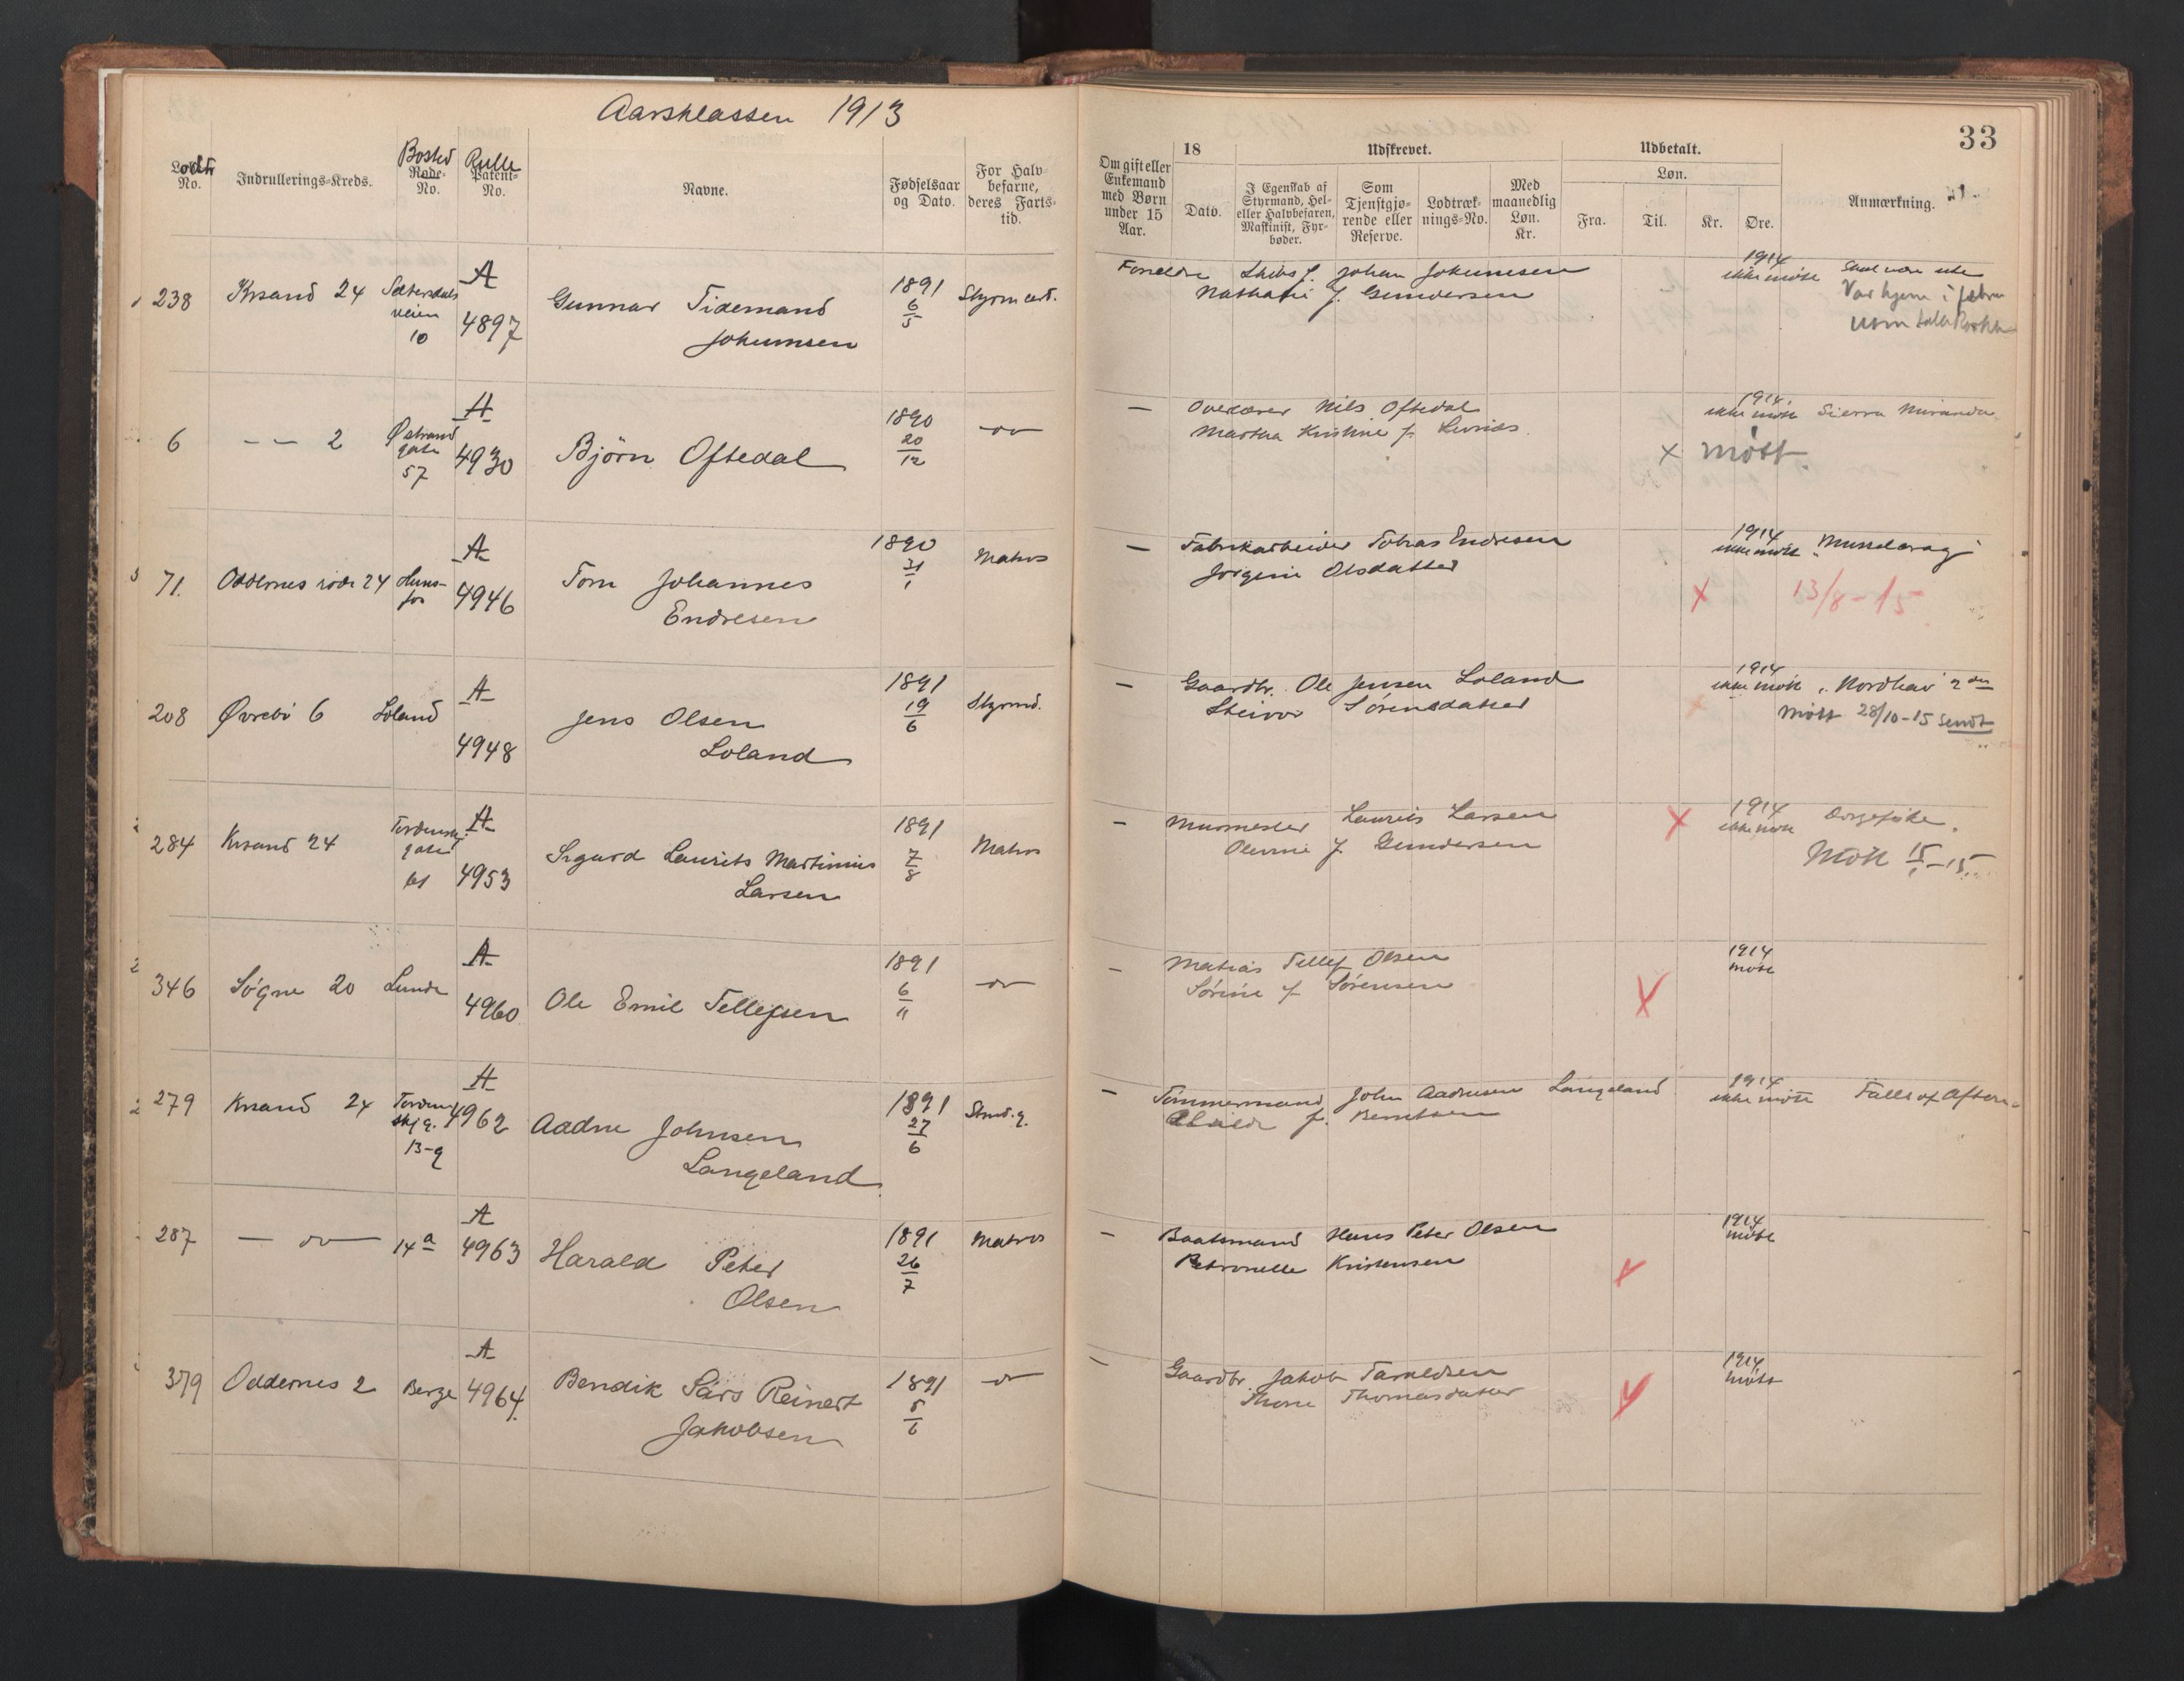 Aarsklassen 1913
33
Lodtr No.
Indrullerings-Kreds.
Bosted Rode-No.
Rulle Patent-No.
Navne.
Fødselsaar og Dato.
For Halvbefarne, deres Fartstid.
Om gift eller Enkemand med Børn under 15 Aar.
18
Dato.
Udskrevet.
I Egenskab af Styrmand, Hel- eller Halvbefaren, Maskinist, Fyrbøder.
Som Tjenstgjørende eller Reserve.
Lodtræknings-No.
Med maanedlig Løn. Kr.
Udbetalt.
Løn.
Fra.
Til.
Kr.
Øre.
Anmærkning.
238 Krsand 24 Sætersdals veien 10
A 4897
Gunnar Tidemand
Johumsen
1891 6/5
Styrm cert.
Forældre Johan Johumsen
Nathalie f. Gundersen
1914 ikke møtt
Var hjem i
6 — — 2 Østrand gate 57
A 4930
Bjørn Oftedal
1890 20/12
do
— Overlærer Nils Oftedal
Martha Kristine f.
1914. ikke møtt Sierra Miranda
x møtt.
71. Oddernes rode 24 Hunsfos
A 4946
Tom Johannes
Endresen
1890 31/1
Matros
— Fabrikarbeider Tobias Endresen
Jörgine Olsdatter
1914 ikke møtt "Mundarag"
x 13/8-15
208 Øvrebö 6 Loland
A 4948
Jens Olsen
Loland
1891 19/6
Styrmd.
— Gaardbr. Ole Jensen Loland
Sörensdatter
1914 ikke møtt "Nordhav" 2den
x Møtt 28/10-15 sendt
284 Krsand 24 Tordenskj. gate 61
A 4953
Sigurd Laurits Martinius
Larsen
1891 7/8
Matros
— Murmester Laurits Larsen
Olevine f. Gundersen
x 1914 ikke møtt
Møtt 15/-15
346 Søgne 20 Lunde
A 4960
Ole Emil Tellefsen
1891 6/11
do
— Matias Tellef Olsen
Sörine f. Sörensen
x 1914 møtt
279 Krsand 24 Tordenskj g. 13-9
A 4962
Aadne Johnsen
Langeland
1891 27/6
— Tømmermand John Aadnesen Langeland
f. Berntsen
1914 ikke møtt Falls of Afton
287 — do — 14 a
A 4963
Harald Peter
Olsen
1891 26/7
Matros
— Baatsmand Hans Peter Olsen
Petronelle Kristensen
1914 møtt
379 Oddernes 2 Berge
A 4964.
Bendik Lars Reinert
Jakobsen
1891 5/6
do
— Gaardbr Jakob Tarjeldsen
Thone Thomasdatter
1914 møtt